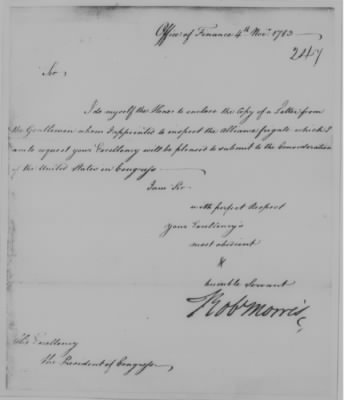 Office of Finance 4th Novr. 1783
247
Sir,
I do myself the Honor to enclose the Copy of a Letter from
the Gentlemen whom I appointed to inspect the Alliance frigate which I
am to request your Excellency will be pleased to submit to the Consideration
of the United States in Congress
I am Sir
with perfect Respect
your Excellency's
most obedient
&
humble Servant
Robt Morris
His Excellency
the President of Congress